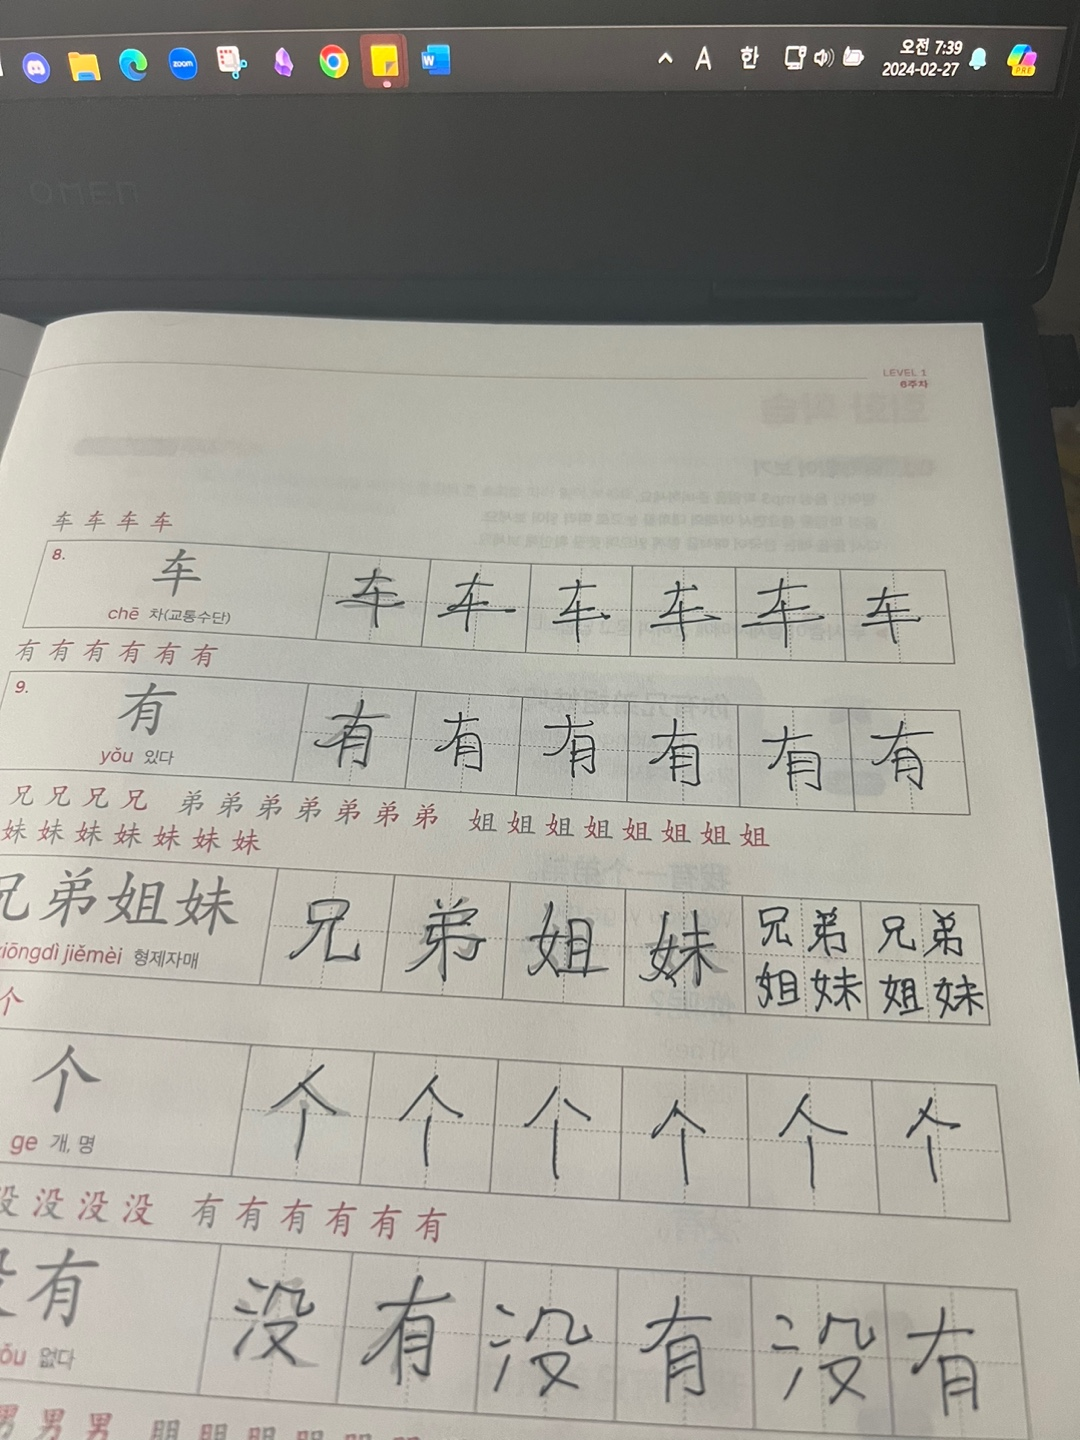 zoom
W
A 한
오전 7:39
2024-02-27
PRE
OMEN
LEVEL 1
6주차
车 车 车 车
8.
车
chē 차(교통수단)
车 车 车 车 车 车
有 有 有 有 有 有
9.
有
yǒu 있다
有 有 有 有 有 有
兄 兄 兄 兄 弟 弟 弟 弟 弟 弟 弟 姐 姐 姐 姐 姐 姐 姐 姐
妹 妹 妹 妹 妹 妹 妹
兄弟姐妹
xiōngdì jiěmèi 형제자매
兄 弟 姐 妹 兄弟 兄弟
姐妹 姐妹
个
个
ge 개, 명
个 个 个 个 个 个
没 没 没 没 有 有 有 有 有 有
没有
없다
没 有 没 有 没 有
男 男 男 朋 朋 朋 朋